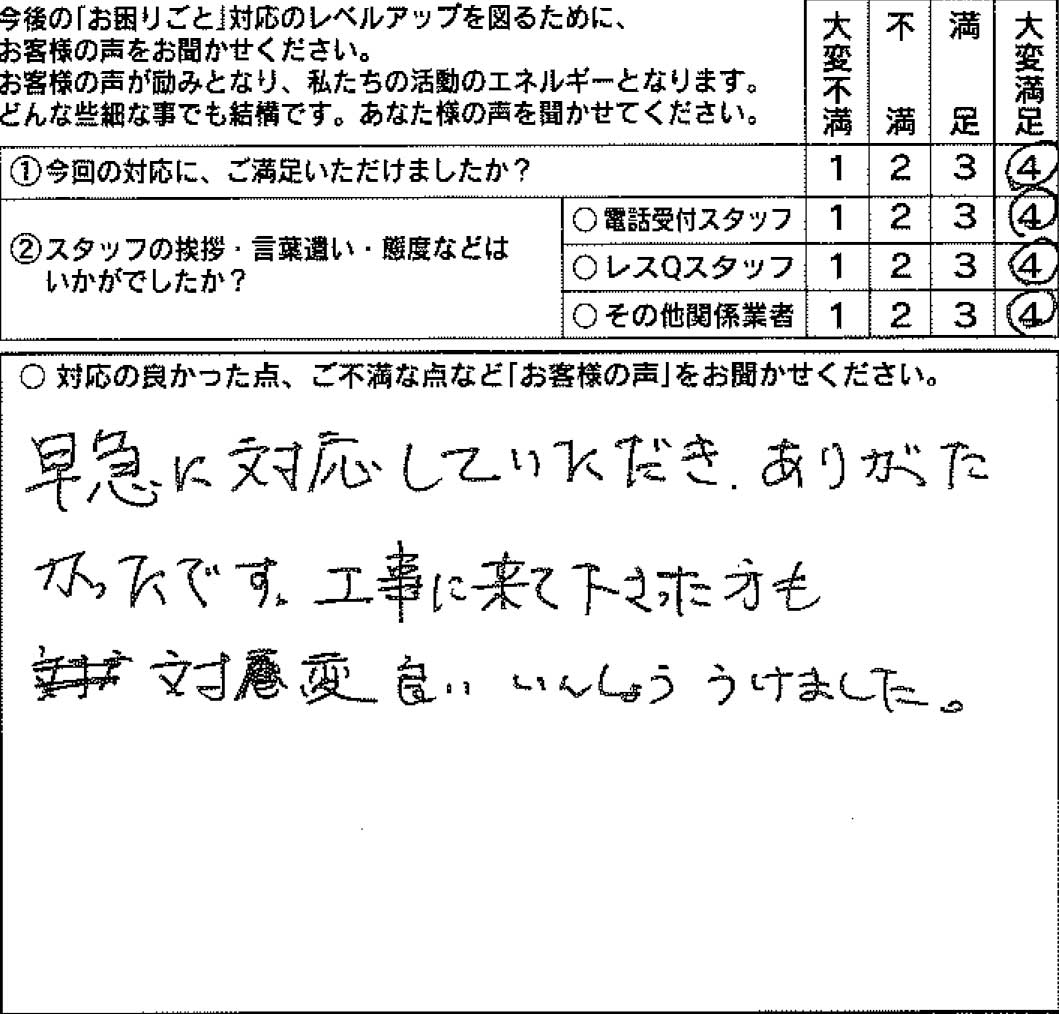 今後の「お困りごと」対応のレベルアップを図るために、
お客様の声をお聞かせください。
お客様の声が励みとなり、私たちの活動のエネルギーとなります。
どんな些細な事でも結構です。あなた様の声を聞かせてください。
大変不満
不満
満足
大変満足
①今回の対応に、ご満足いただけましたか？ 1 2 3 4
②スタッフの挨拶・言葉遣い・態度などは
いかがでしたか？
○電話受付スタッフ 1 2 3 4
○レスQスタッフ 1 2 3 4
○その他関係業者 1 2 3 4
○ 対応の良かった点、ご不満な点など「お客様の声」をお聞かせください。
早急に対応していただき、ありがた
かったです。工事に来て下さった方も
対 変良い いんしょう うけました。